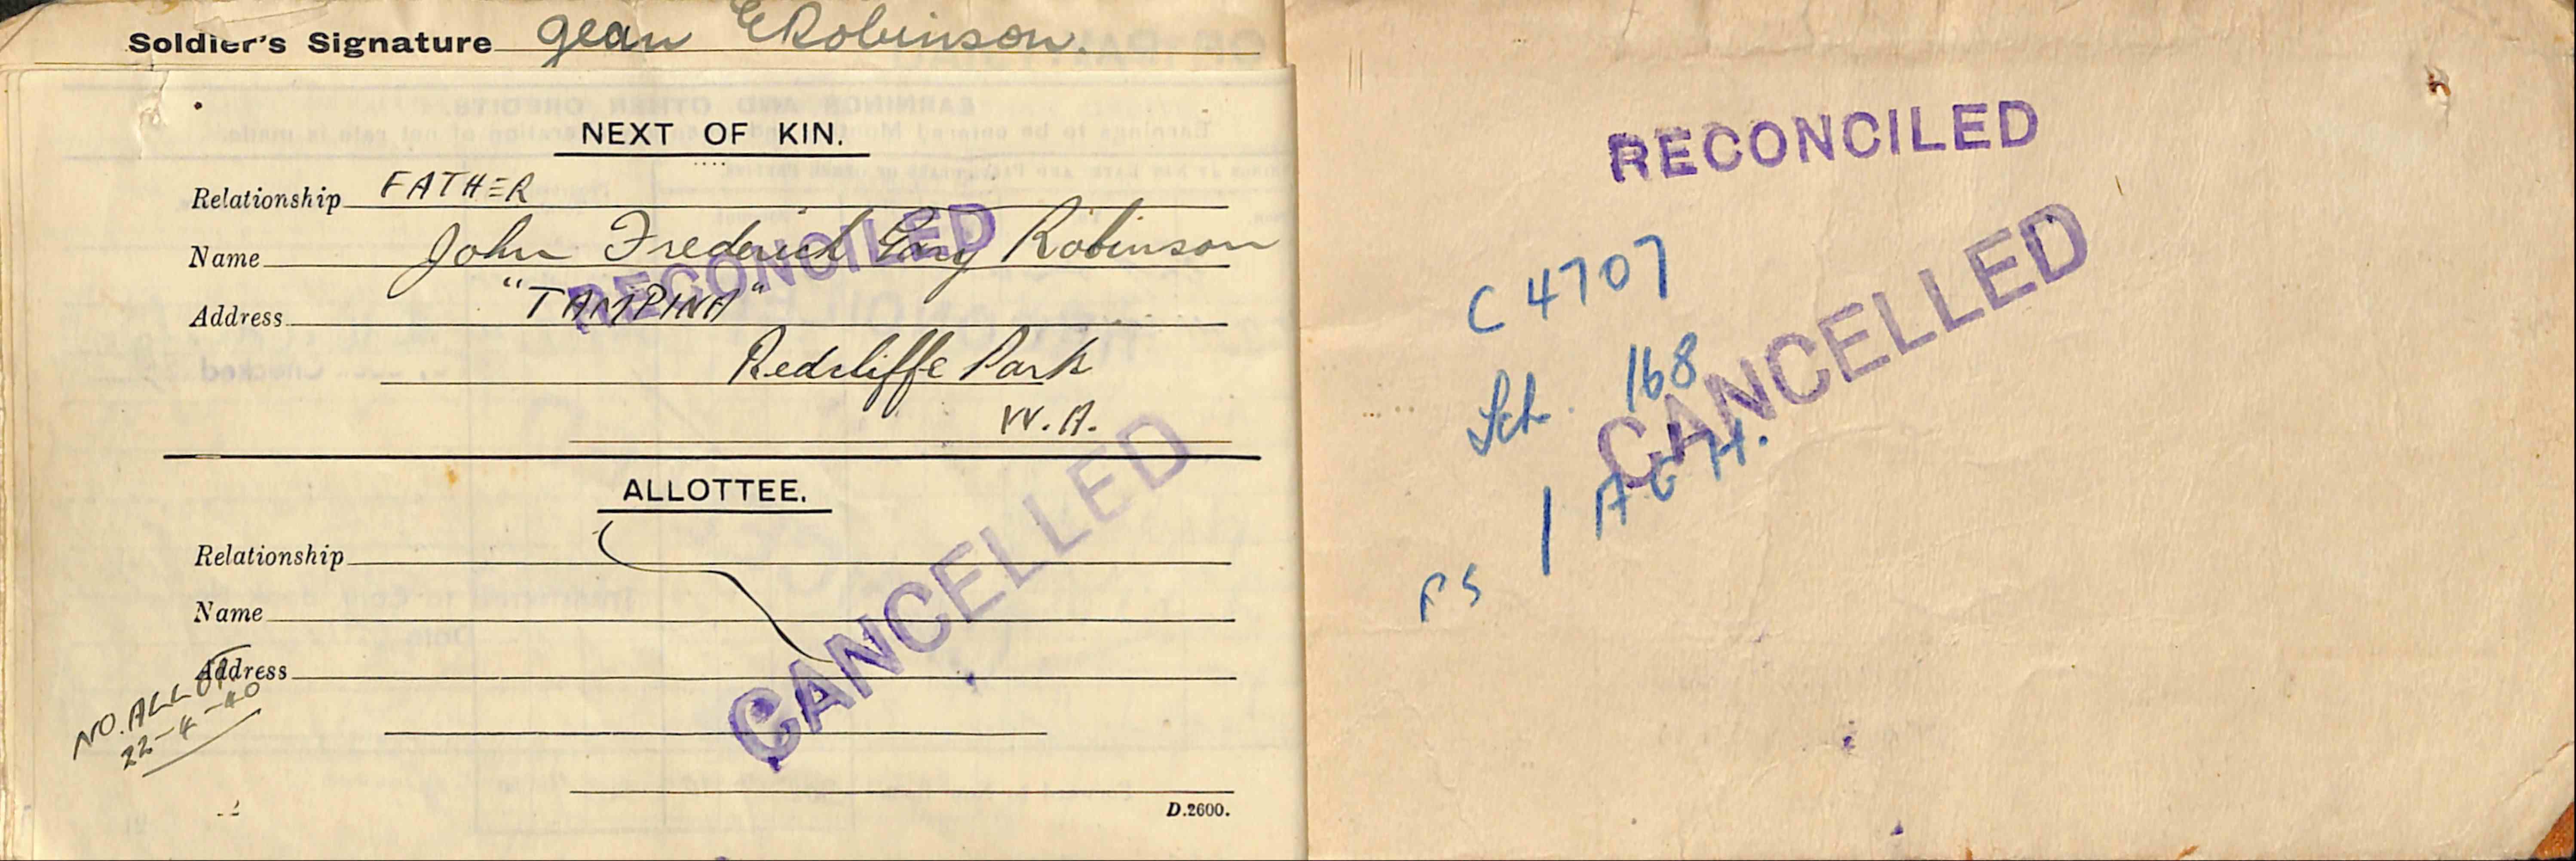 Soldier's Signature Jean E Robinson.
NEXT OF KIN.
Relationship FATHER
Name John Frederick Gary Robinson
Address "TAMPINA"
Redcliffe Park
W.A.
RECONCILED
ALLOTTEE.
Relationship
Name
Address
NO. ALLOT
22-4-40
CANCELLED
D.2600.
RECONCILED
C 4707
Sch. 168
1 AGH.
CANCELLED
PS